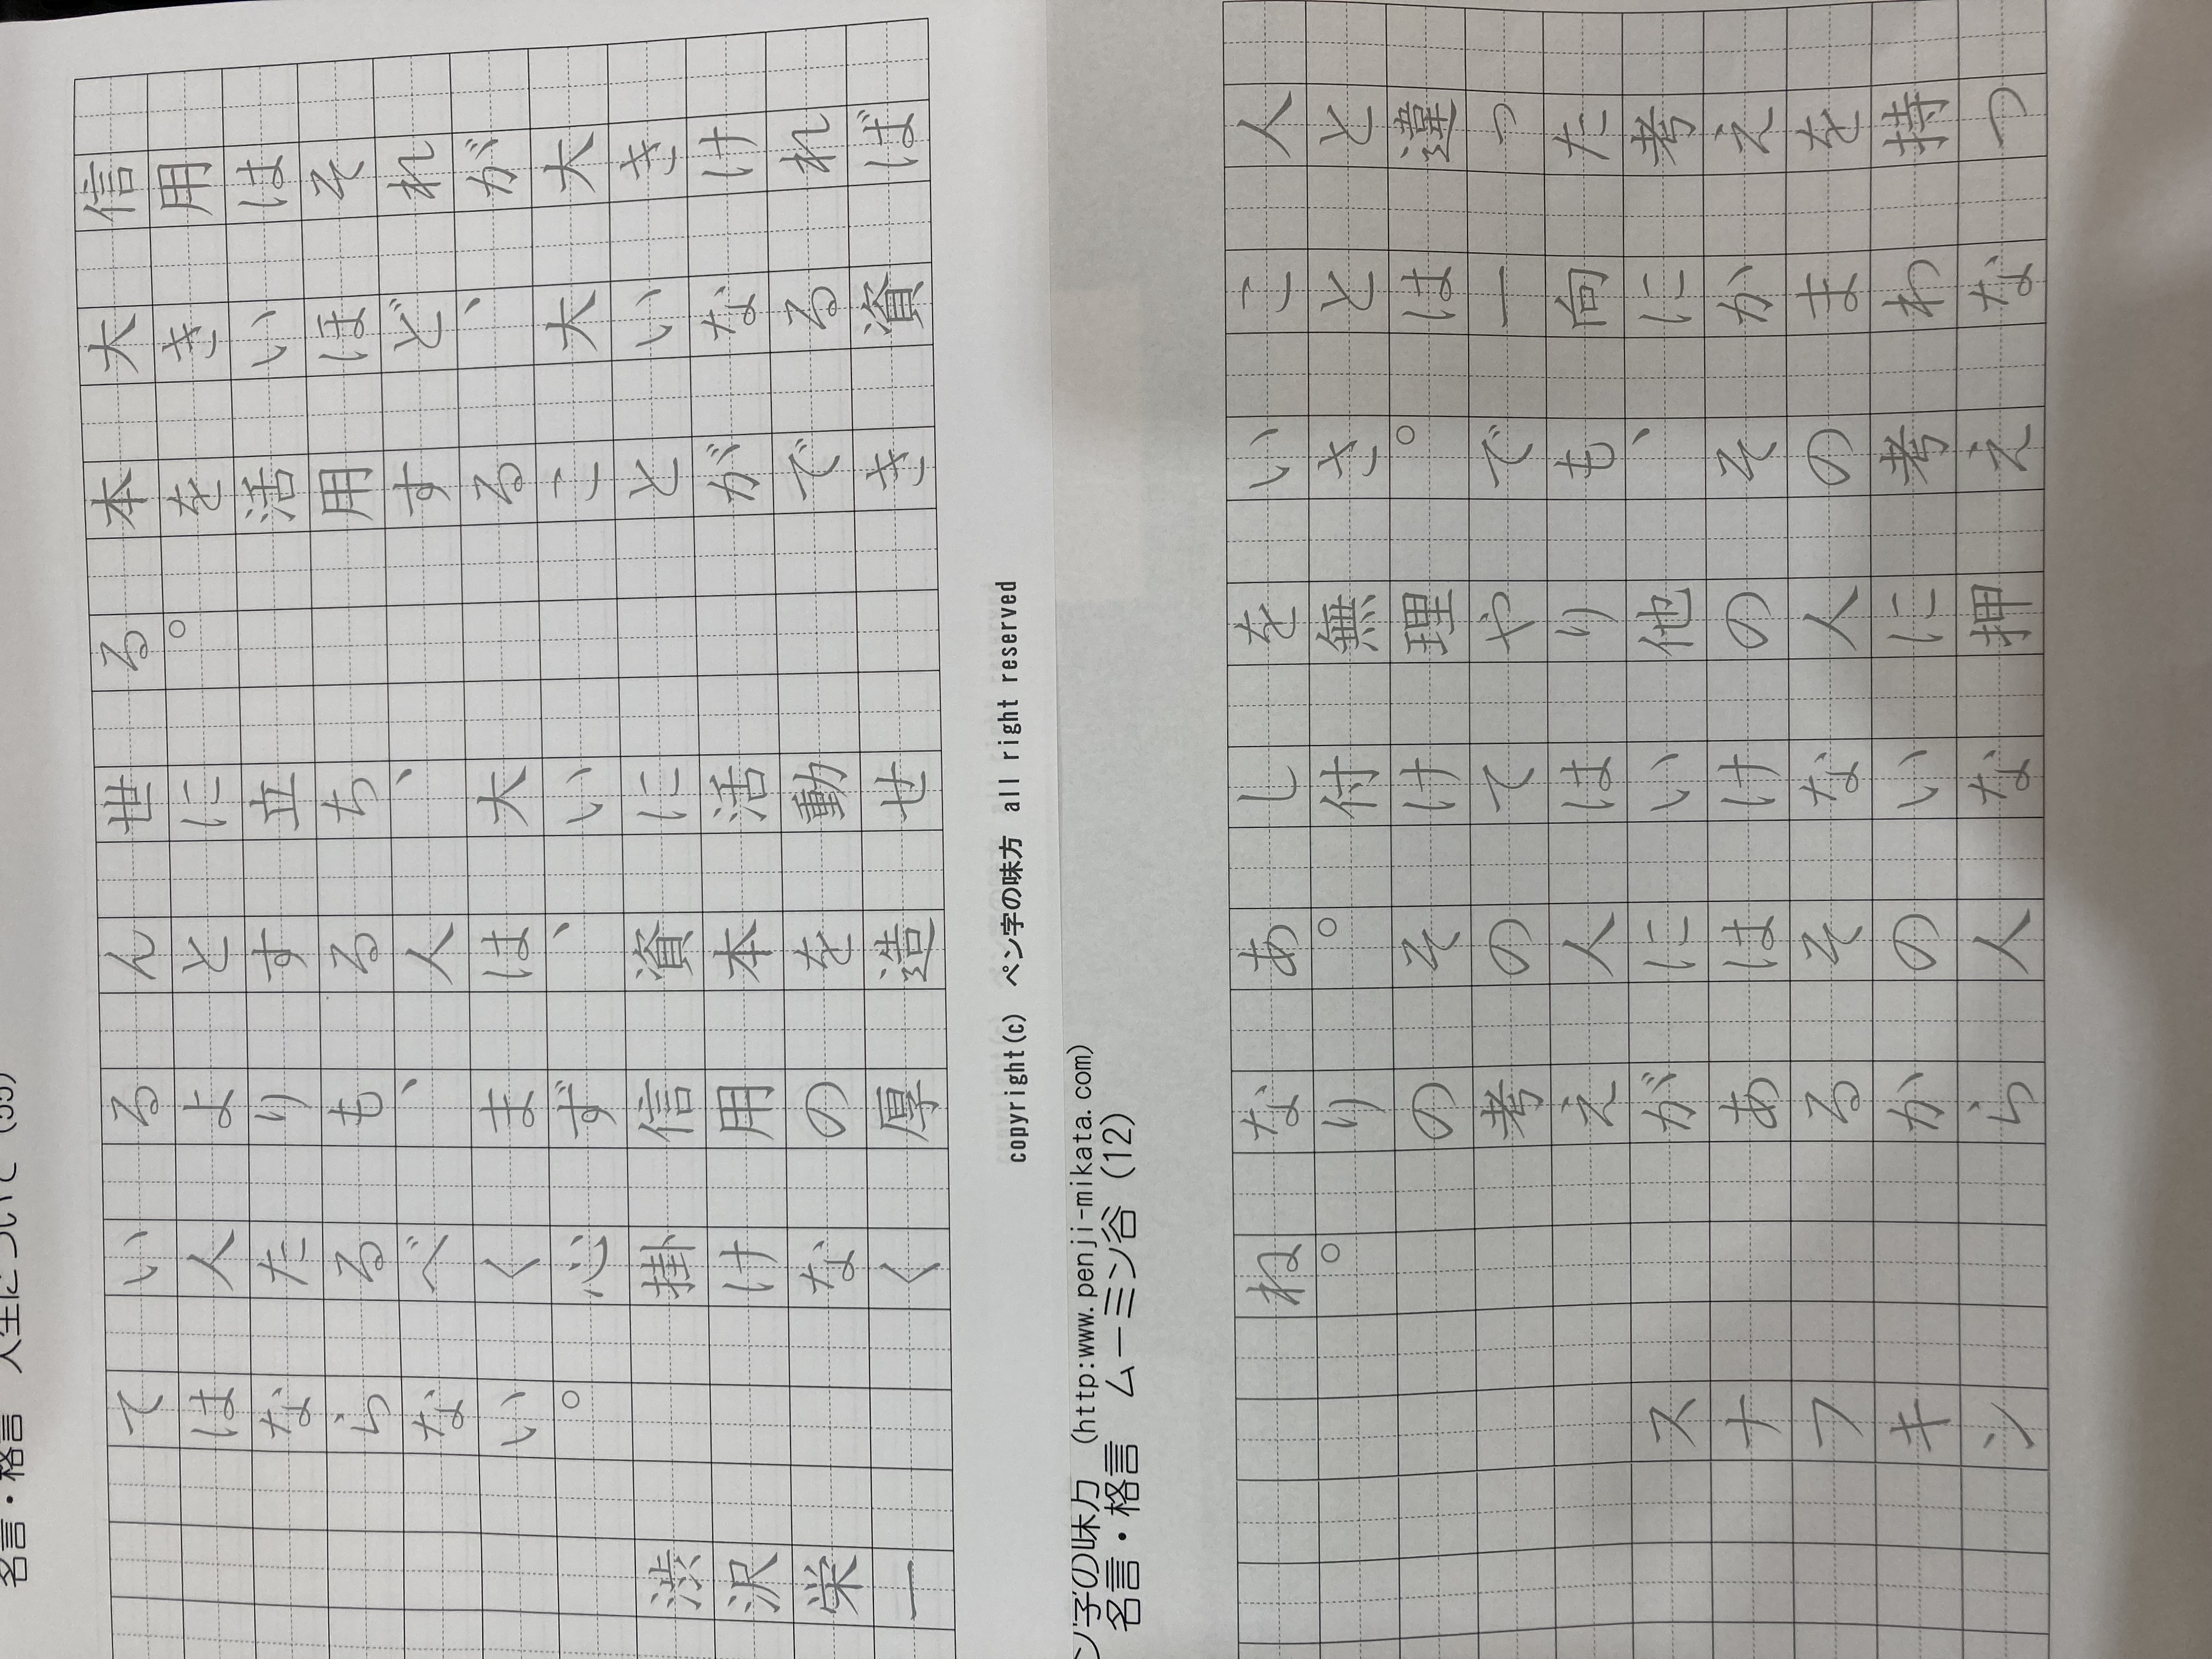 名言・格言　人生について
信用はそれが大きければ
大きいほど、大いなる資
本を活用することができ
る。
世に立ち、大いに活動せ
んとする人は、資本を造
るよりも、まず信用の厚
い人たるべく心掛けなく
てはならない。
渋沢栄一
copyright(c)　ペン字の味方　all right reserved
ン字の味方　(http:www.penji-mikata.com)
名言・格言　ムーミン谷　(12)
人と違った考えを持つ
ことは一向にかまわな
いさ。でも、その考え
を無理やり他の人に押
し付けてはいけないな
あ。その人にはその人
なりの考えがあるから
ね。
スナフキン